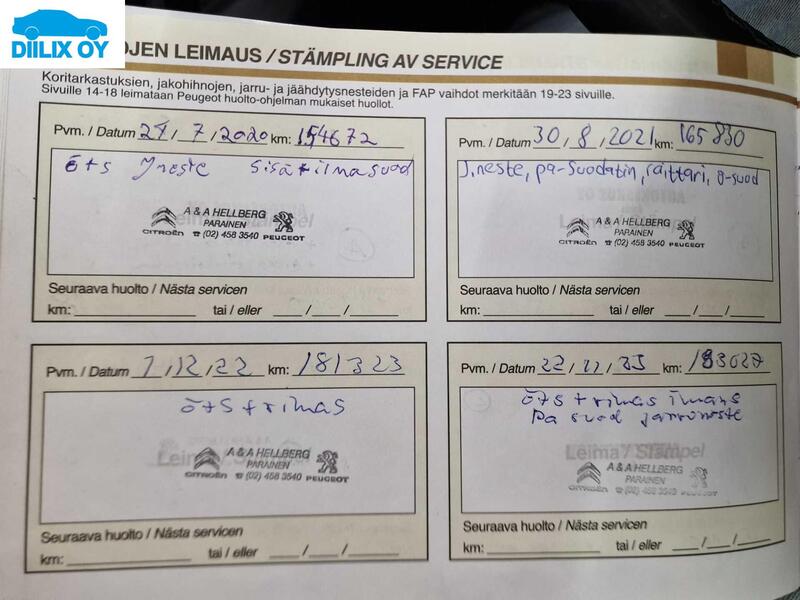 DIILIX OY
OJEN LEIMAUS / STÄMPLING AV SERVICE
Koritarkastuksien, jakohihnojen, jarru- ja jäähdytysnesteiden ja FAP vaihdot merkitään 19-23 sivuille.
Sivuille 14-18 leimataan Peugeot huolto-ohjelman mukaiset huollot.
Pvm. / Datum 29 / 7 / 2020 km: 154672
öts Jneste sisäilmasuod
A & A HELLBERG
PARAINEN
CITROËN ☎ (02) 458 3540 PEUGEOT
Seuraava huolto / Nästa servicen
km: tai / eller / /
Pvm. / Datum 30 / 8 / 2021 km: 165830
J.neste, pa-suodatin, raittari, ö-suod
A & A HELLBERG
PARAINEN
CITROËN ☎ (02) 458 3540 PEUGEOT
Seuraava huolto / Nästa servicen
km: tai / eller / /
Pvm. / Datum 7 / 12 / 22 km: 181323
öts + rimas
A & A HELLBERG
PARAINEN
CITROËN ☎ (02) 458 3540 PEUGEOT
Seuraava huolto / Nästa servicen
km: tai / eller / /
Pvm. / Datum 22 / 11 / km:
öts + rimas ilmans
pa suod jarruneste
Leima / Stämpel
A & A HELLBERG
PARAINEN
CITROËN ☎ (02) 458 3540 PEUGEOT
Seuraava huolto / Nästa servicen
km: tai / eller / /